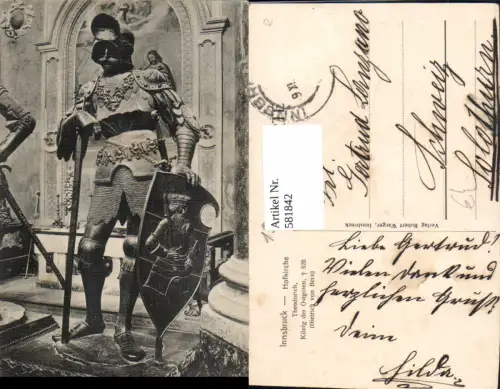 Frl.
Gertrud Langano
Schweiz
Solothurn
Artikel Nr.
581842
Verlag Robert Warger, Innsbruck.
Innsbruck — Hofkirche
Theodorich,
König der Ostgoten, † 526
(Dietrich von Bern)
Liebe Gertrud!
Vielen Dank und
herzlichen Gruß
Deine
Hilda.